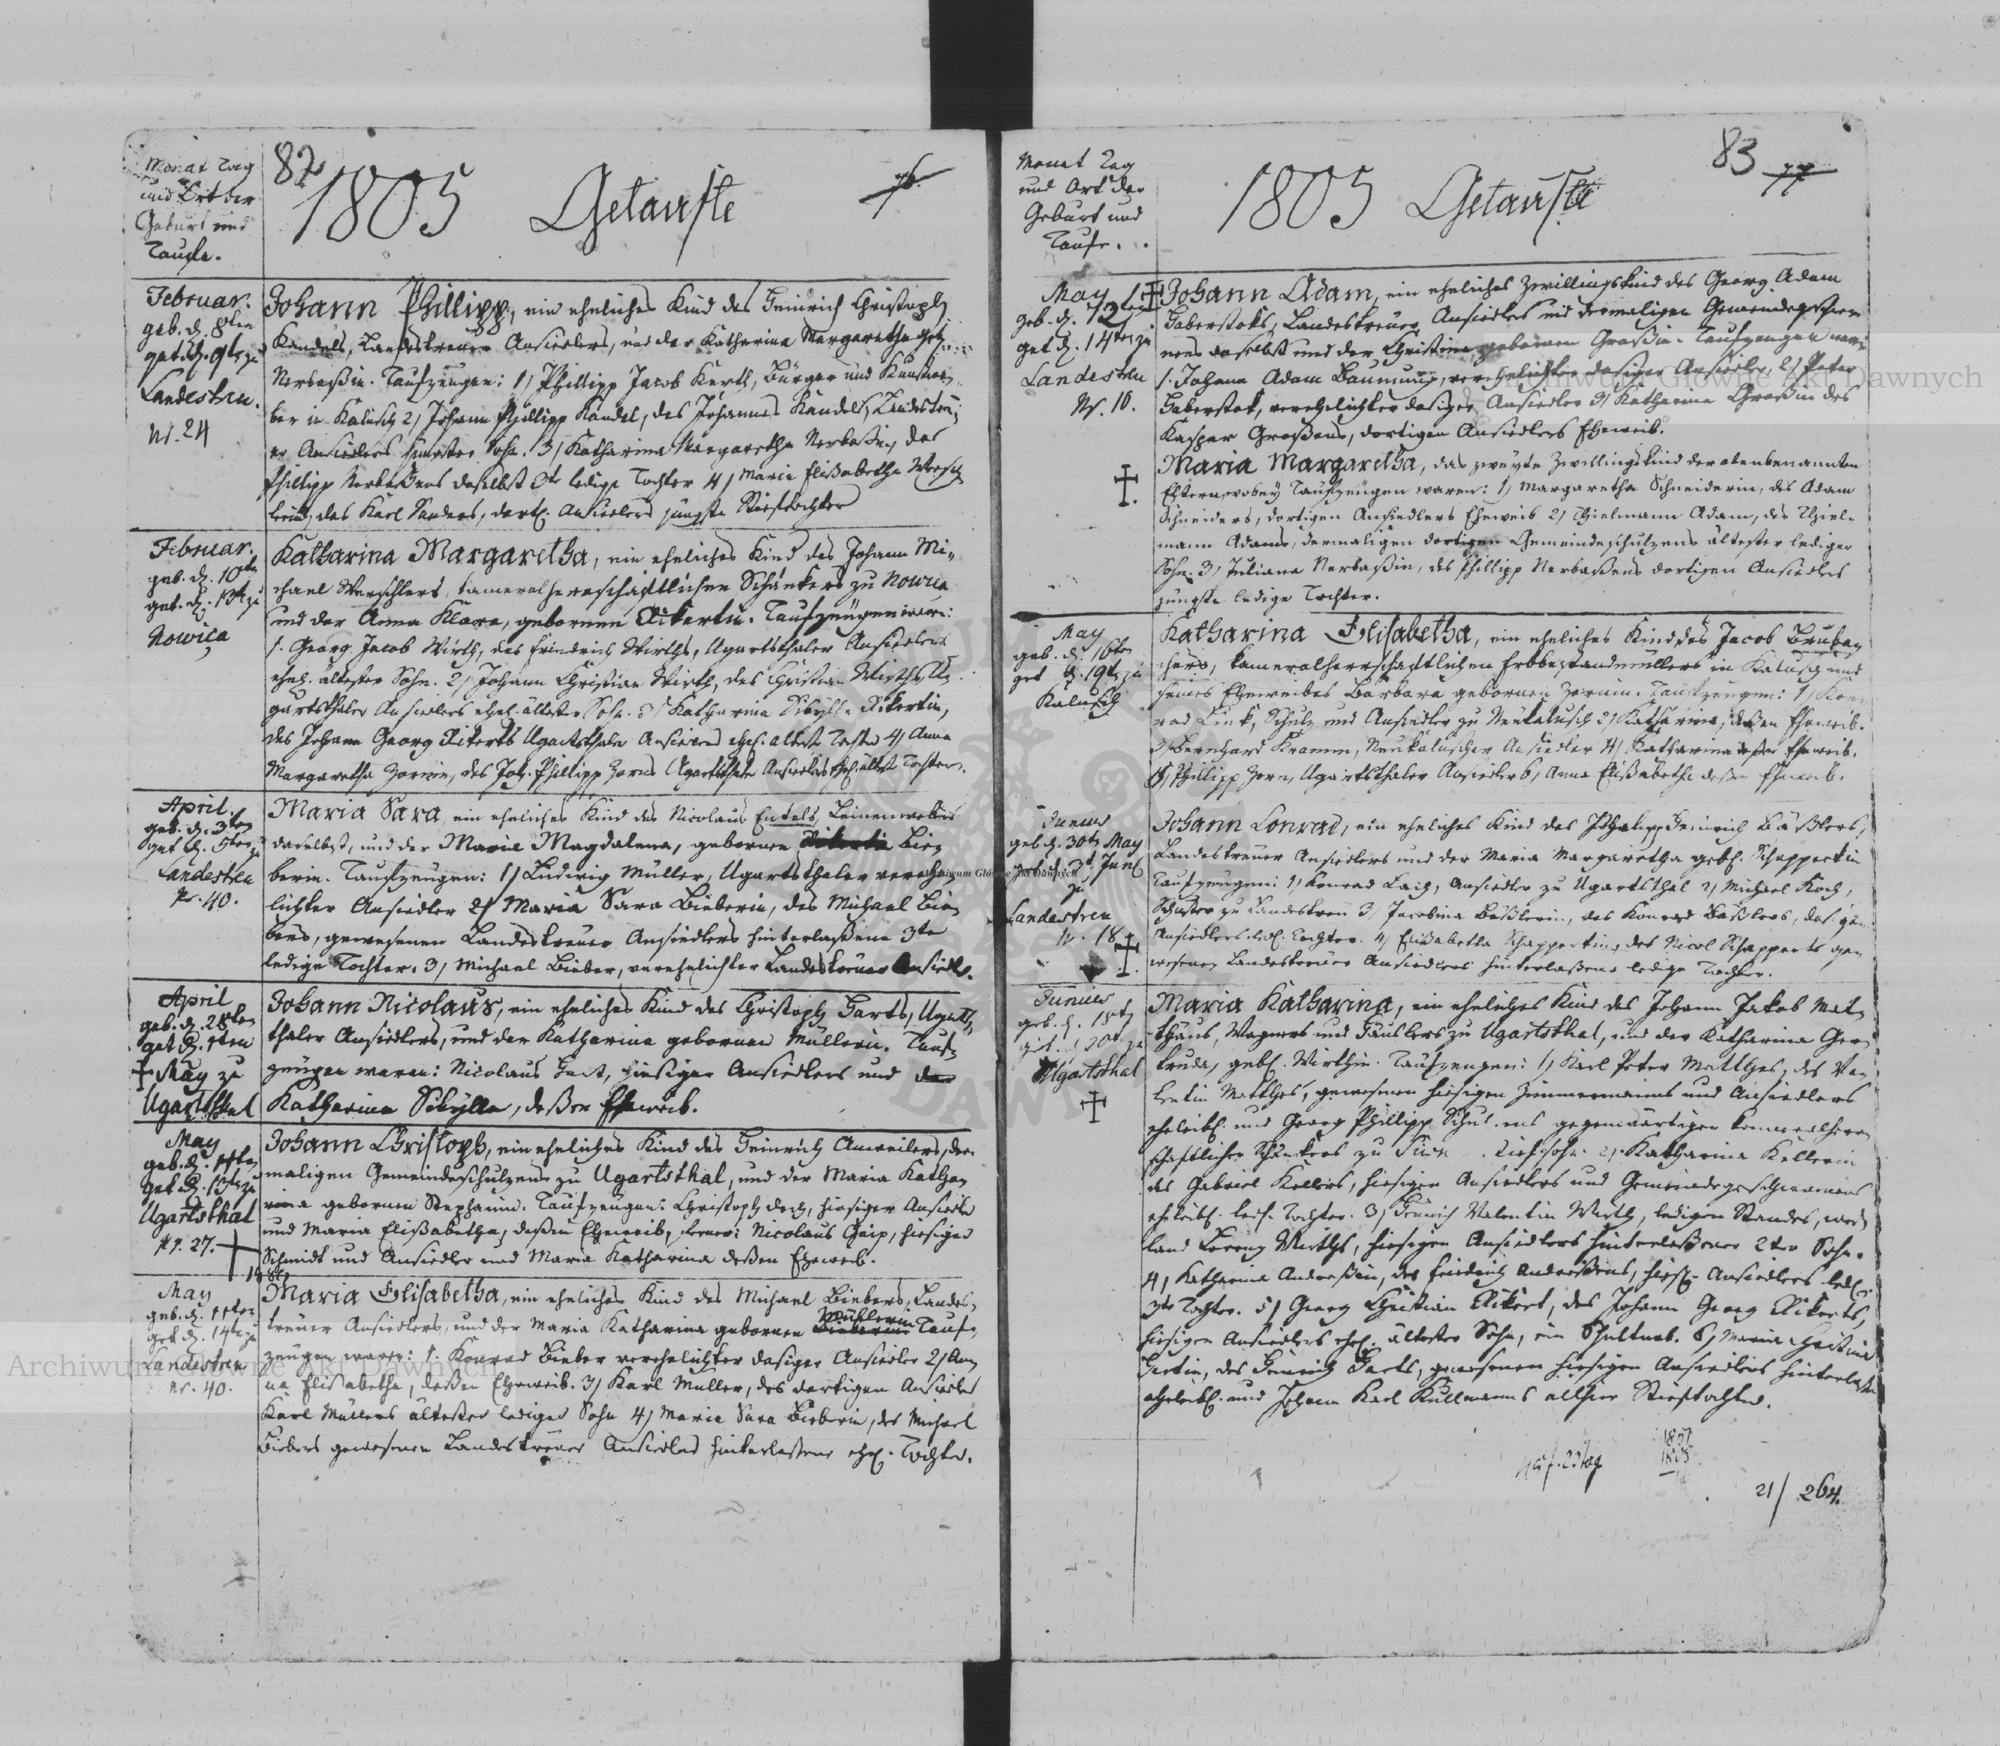 Monat Tag
und Ort der
Geburt und
Taufe.
82
1805 Getaufte
Februar.
geb. d. 8ten
get. d. 9ten zu
Landestreu.
Nr. 24
Johann Phillipp, ein eheliches Kind des Heinrich Christoph
Kandels, Landestreuer Ansiedlers, und der Katharina Margaretha geb.
Nerbaßin. Taufzeugen: 1) Phillipp Jacob Kertl, Bürger und
ber in Kalusch 2) Johann Phillipp Kandel, des Johannes Kandels, Landestreu
er Ansiedlers Sohn. 3) Katharina Margaretha Nerbaßin, des
Phillipp Nerbaßens daselbst ledige Tochter 4) Maria Elisabetha
des Karl Sanders, dort. Ansiedlers jüngste Stieftochter
Februar.
geb. d. 10ten
get. d. 13ten zu
Nowica
Katharina Margaretha, ein eheliches Kind des Johann Mi-
chael Werschlers, kameralherrschaftlichen Schänkers zu Nowica
und der Anna Klara, gebornen Rikertin. Taufzeugen waren:
1. Georg Jacob Wirth, des Friedrich Wirths, Ugartsthaler Ansiedlers
ehel. ältester Sohn. 2) Johann Christian Wirth, des Christian Wirths U-
gartsthaler Ansiedlers ehel. ältester Sohn. 3) Katharina Sibylla Rikertin,
des Johann Georg Rikerts Ugartsthaler Ansiedlers ehel. älteste Tochter 4) Anna
Margaretha Zornin, des Joh. Phillipp Zorns Ugartsthaler Ansiedlers ehel. älteste Tochter.
April.
geb. d. 3ten
get. d. 5ten zu
Landestreu
Nr. 40.
Maria Sara, ein eheliches Kind des Nicolaus Endels, Leinenwebers
daselbst, und der Maria Magdalena, gebornen Bie-
berin. Taufzeugen: 1) Ludwig Müller, Ugartsthaler vereh-
lichter Ansiedler 2) Maria Sara Bieberin, des Michael Bie-
bers, gewesenen Landestreuer Ansiedlers hinterlaßene 3te
ledige Tochter. 3) Michael Bieber, verehelichter Landestreuer Ansiedler.
April
geb. d. 28ten
get. d. 1ten
May zu
Ugartsthal
Johann Nicolaus, ein eheliches Kind des Christoph Harts, Ugarts-
thaler Ansiedlers, und der Katharina gebornen Müllerin. Tauf-
zeugen waren: Nicolaus Hart, hiesiger Ansiedlers und der
Katharina Sibylla, deßen Eheweib.
May
geb. d. 11ten
get. d. 13ten zu
Ugartsthal
Nr. 27.
Johann Christoph, ein eheliches Kind des Heinrich Anweilers, der-
maligen Gemeindeschulzens zu Ugartsthal, und der Maria Katha-
rina gebornen Stephanin. Taufzeugen: Christoph hiesiger Ansiedler
und Maria Elisabetha, deßen Eheweib, ferner: Nicolaus hiesiger
Schmidt und Ansiedler und Maria Katharina deßen Eheweib.
May
geb. d. 11ten
get. d. 14ten zu
Landestreu
Nr. 40.
Maria Elisabetha, ein eheliches Kind des Michael Biebers, Landes-
treuer Ansiedlers, und der Maria Katharina gebornen Müllerin Tauf-
zeugen waren: 1. Konrad Bieber verehelichter dasiger Ansiedler 2) An-
na Elisabetha, deßen Eheweib. 3) Karl Müller, des dortigen Ansiedlers
Karl Müllers ältester lediger Sohn 4) Maria Sara Bieberin, des Michael
Biebers gewesenen Landestreuer Ansiedlers hinterlaßene ehel. Tochter.
Monat Tag
und Ort der
Geburt und
Taufe.
83 77
1805 Getaufte
May
geb. d. 12ten
get. d. 14ten zu
Landestreu
Nr. 10.
Johann Adam, ein eheliches Zwillingskind des Georg Adam
Haberstoks, Landestreuer Ansiedlers und dermaligen Gemeindegeschwor-
nens daselbst und der Christina, gebornen Großin. Taufzeugen waren
1. Johann Adam Baumung, verehelichter dasiger Ansiedler, 2) Peter
Haberstok, verehelichter dasiger Ansiedler 3) Katharina Großin des
Kaspar Großens, dortigen Ansiedlers Eheweib.
Maria Margaretha, das zweyte Zwillingskind der obenbenannten
Eltern, wobey Taufzeugen waren: 1) Margaretha Schneiderin, des Adam
Schneiders, dortigen Ansiedlers Eheweib 2) Thielmann Adam, des Thiel-
mann Adams, dermaligen dortigen Gemeindeschulzens ältester lediger
Sohn. 3) Juliana Nerbaßin, des Phillipp Nerbaßens dortigen Ansiedlers
jüngste ledige Tochter.
May
geb. d. 16ten
get. d. 19ten zu
Kalusch
Katharina Elisabetha, ein eheliches Kind des Jacob Bruba-
chers, kameralherrschaftlichen Erbbestandmüllers in Kalusch und
seines Eheweibes Barbara gebornen Zornin. Taufzeugen: 1) Kon-
rad Link, Schulz und Ansiedler zu Neukalusch 2) Katharina, deßen Eheweib.
3) Bernhard Kramm, Neukaluscher Ansiedler 4) Katharina deßen Eheweib.
5) Phillipp Zorn, Ugartsthaler Ansiedler 6) Anna Elisabetha deßen Eheweib.
Junius
geb. d. 30ten May
get. d. 2t Juni
zu
Landestreu
Nr. 18
Johann Conrad, ein eheliches Kind des Phillipp Heinrich Bäßlers,
Landestreuer Ansiedlers und der Maria Margaretha geb. Schappertin
Taufzeugen: 1) Konrad Ansiedler zu Ugartsthal 2) Michael Koch,
Schuster zu Landestreu 3) Jacobina Bäßlerin, des Konrad Bäßlers,
Ansiedlers led. Tochter. 4) Elisabetha Schappertin, des Nicol Schapperts ge-
wesenen Landestreuer Ansiedlers hinterlaßene ledige Tochter.
Junius
geb. d. 18t
get. d. 20t zu
Ugartsthal
Maria Katharina, ein eheliches Kind des Johann Jakob Mat-
thäus, Wagners und zu Ugartsthal, und der Katharina Ger-
truda, geb. Wirthin. Taufzeugen: 1) Karl Peter Matthes, des Va-
lentin Matthes, gewesenen hiesigen Zimmermanns und Ansiedlers
eheleibl. und Georg Phillipp gegenwärtigen kameralherr-
schaftlichen Schänkers zu Stiefsohn. 2) Katharina Kellerin
des Gabriel Kellers, hiesigen Ansiedlers und Gemeindegeschwornens
eheleibl. led. Tochter. 3) Heinrich Valentin Wirth, ledigen Standes, wei-
land Wirths, hiesigen Ansiedlers hinterlaßener 2ter Sohn.
4) Katharina Andreßin, des Friedrich Andreßens, hiesig. Ansiedlers led.
Tochter. 5) Georg Christian Rikert, des Johann Georg Rikerts,
hiesigen Ansiedlers ehel. ältester Sohn, ein 6) Maria Christina
Hartin, des Heinrich Harts, gewesenen hiesigen Ansiedlers hinterlaßene
eheleibl. und Johann Karl Kullmanns allhier Stieftochter.
1857
1805
21/ 264.
Archiwum Główne Akt Dawnych
Archiwum Główne Akt Dawnych
Archiwum Główne Akt Dawnych